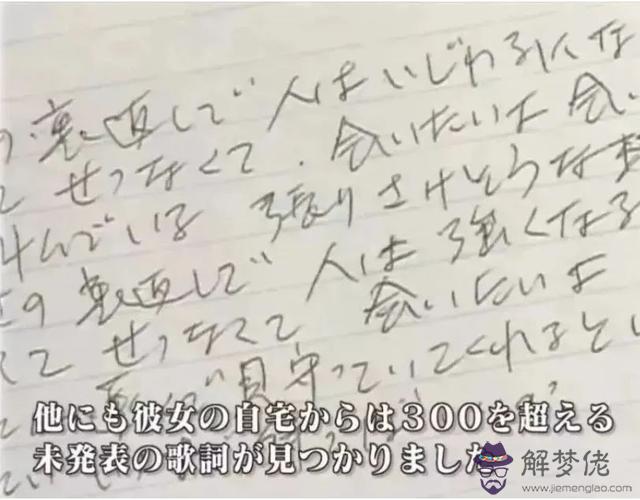 の裏返しで 人はいじわるにな
て せつなくて. 会いたいよ 会い
叫んでいる 張りさけそうな
の裏返しで 人は強くなる
くて せつなくて 会いたいよ
見守っていてくれると
他にも彼女の自宅からは300を超える
未発表の歌詞が見つかりました
解梦佬
www.jiemenglao.com